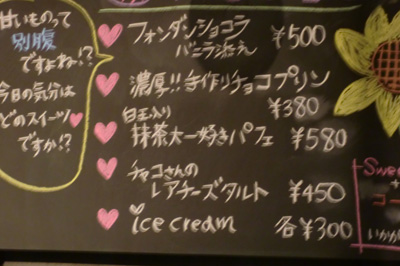 甘いものって
別腹
ですよね!?
今日の気分は
どのスイーツ
ですか!?
フォンダンショコラ
バニラ添え ¥500
濃厚!!手作りチョコプリン
¥380
白玉入り
抹茶大一好きパフェ ¥580
チャコさんの
レアチーズタルト ¥450
ice cream 各¥300
Swee
+
コー
いかが